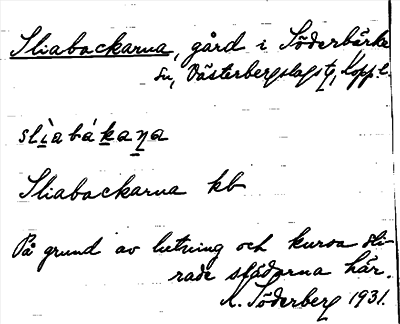 Sliabackarna, gård i Söderbärke
sn, Västerbergslags tg, Kopp. l.
slìabákaṇa
Sliabackarna kb
På grund av lutning och kurva sli-
rade slädarna här.
A. Söderberg 1931.